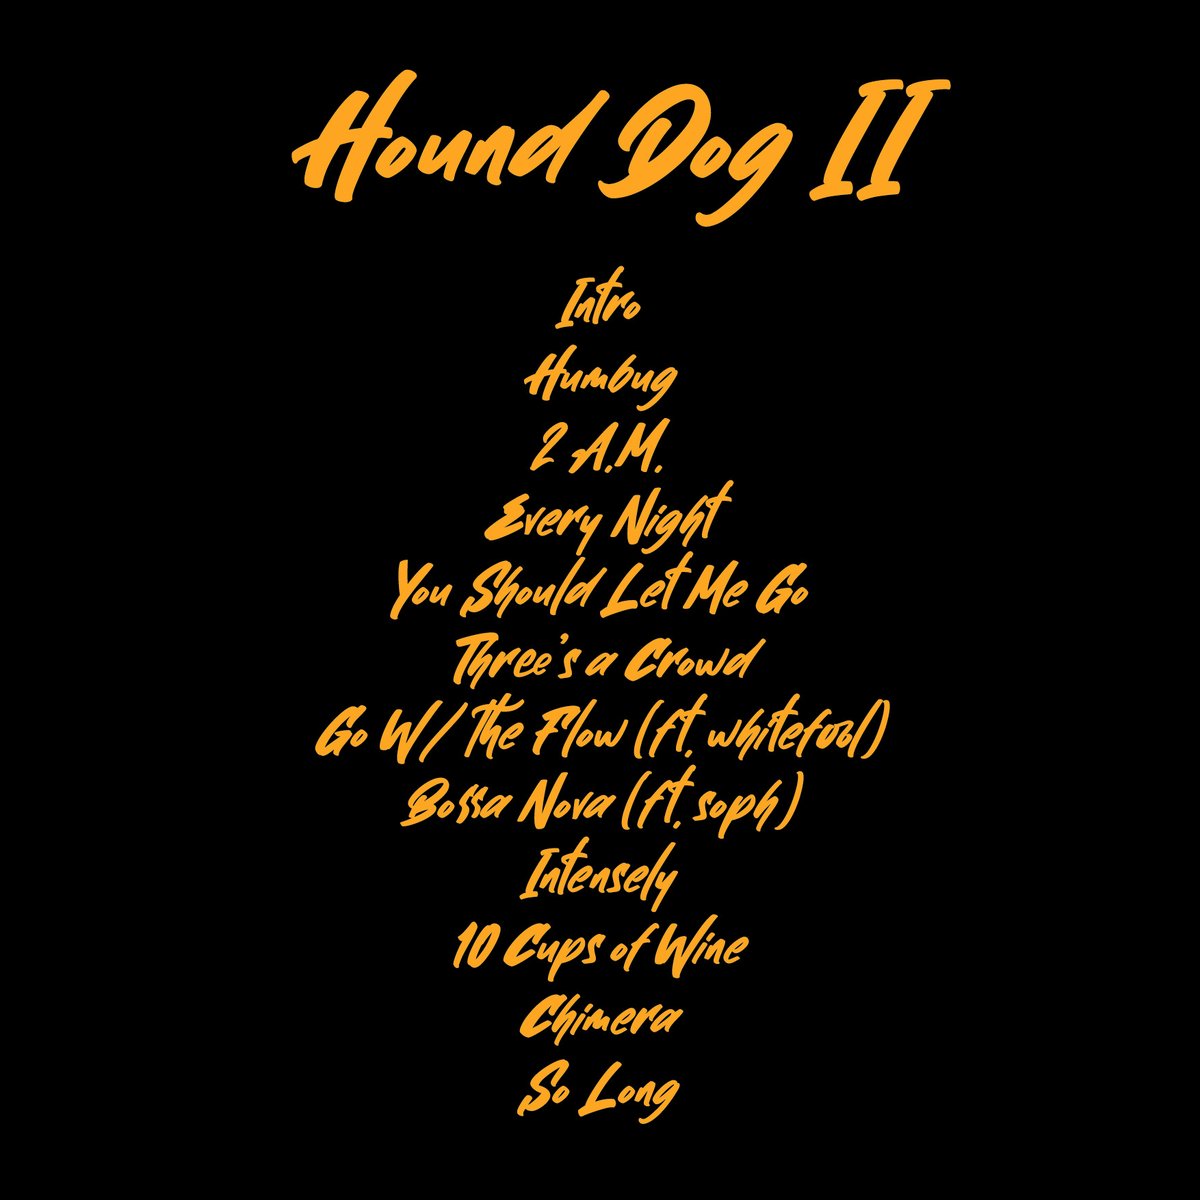 Hound Dog II
Intro
Humbug
2 A.M.
Every Night
You Should Let Me Go
Three's a Crowd
Go W/ The Flow (ft. whitefool)
Bossa Nova (ft. soph)
Intensely
10 Cups of Wine
Chimera
So Long